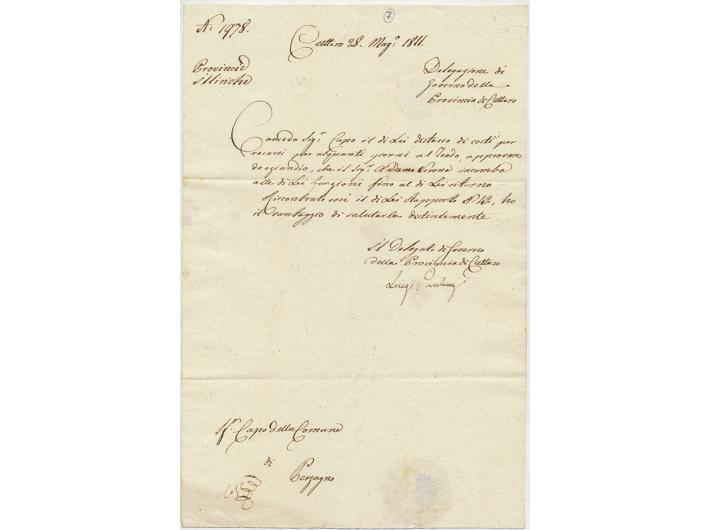 7
N: 1978.
Cattaro 28. Magº 1811.
Provincie
Illiriche
Delegazione di
Governo della
Provincia di Cattaro
Concedo Sigr. Capo il di Lei distacco di costì per
recarsi per alquanti giorni al Teodo, approvan
do eziandio, che il Sigr. incomba
alle di Lei funzioni fino al di Lei ritorno
Riscontrato così il di Lei Rapporto N. 42, ho
il vantaggio di salutarla distintamente
Il Delegato di Governo
della Provincia di Cattaro
Luigi Paulucci
Capo della Comune
di
Perzagno